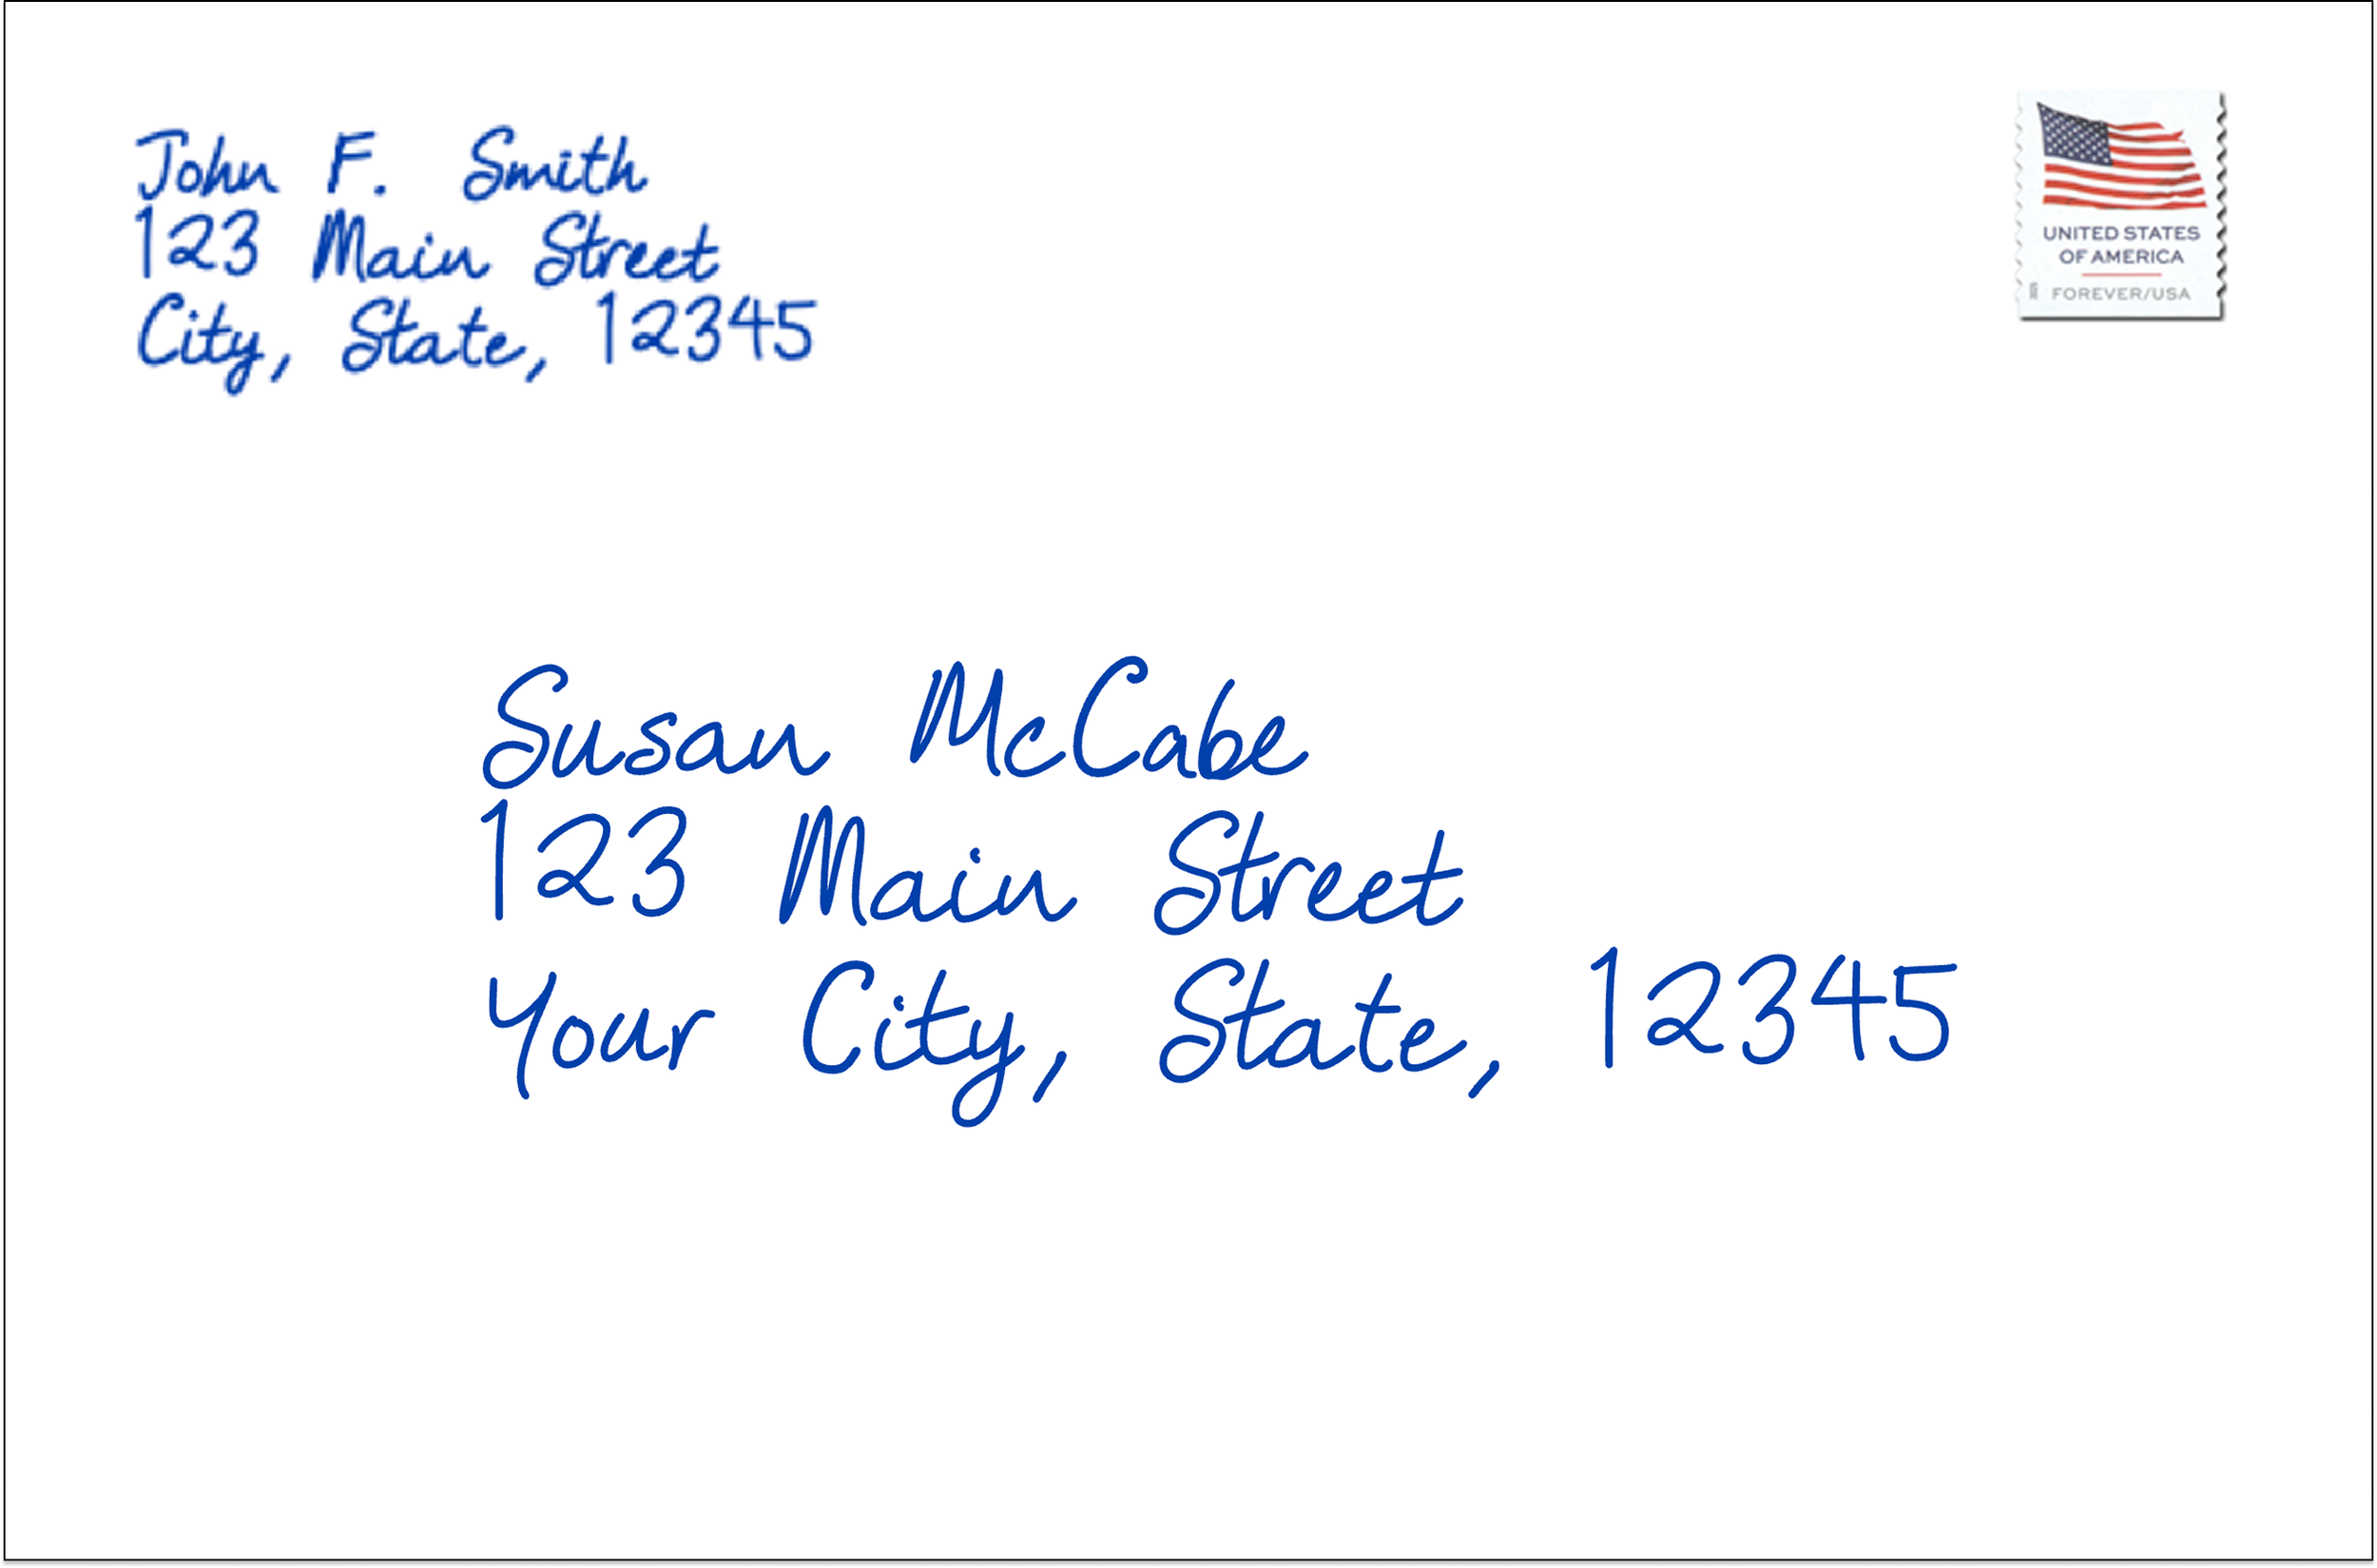 John F. Smith
123 Main Street
City, State, 12345
UNITED STATES
OF AMERICA
FOREVER/USA
Susan McCabe
123 Main Street
Your City, State, 12345